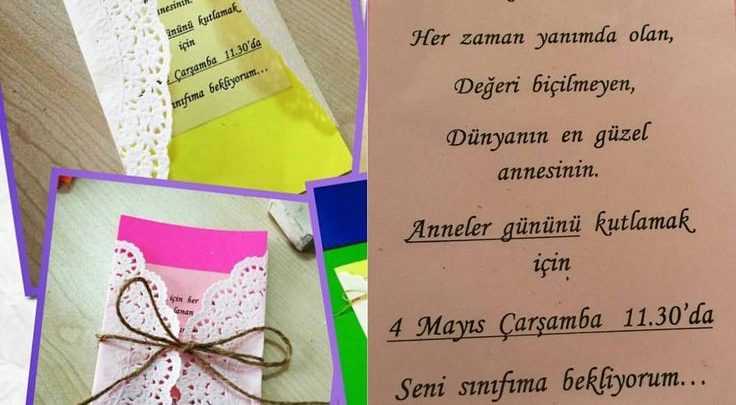 annesinin.
gününü kutlamak
için
Çarşamba 11.30'da
sınıfıma bekliyorum...
için her
Her zaman yanımda olan,
Değeri biçilmeyen,
Dünyanın en güzel
annesinin.
Anneler gününü kutlamak
için
4 Mayıs Çarşamba 11.30'da
Seni sınıfıma bekliyorum...